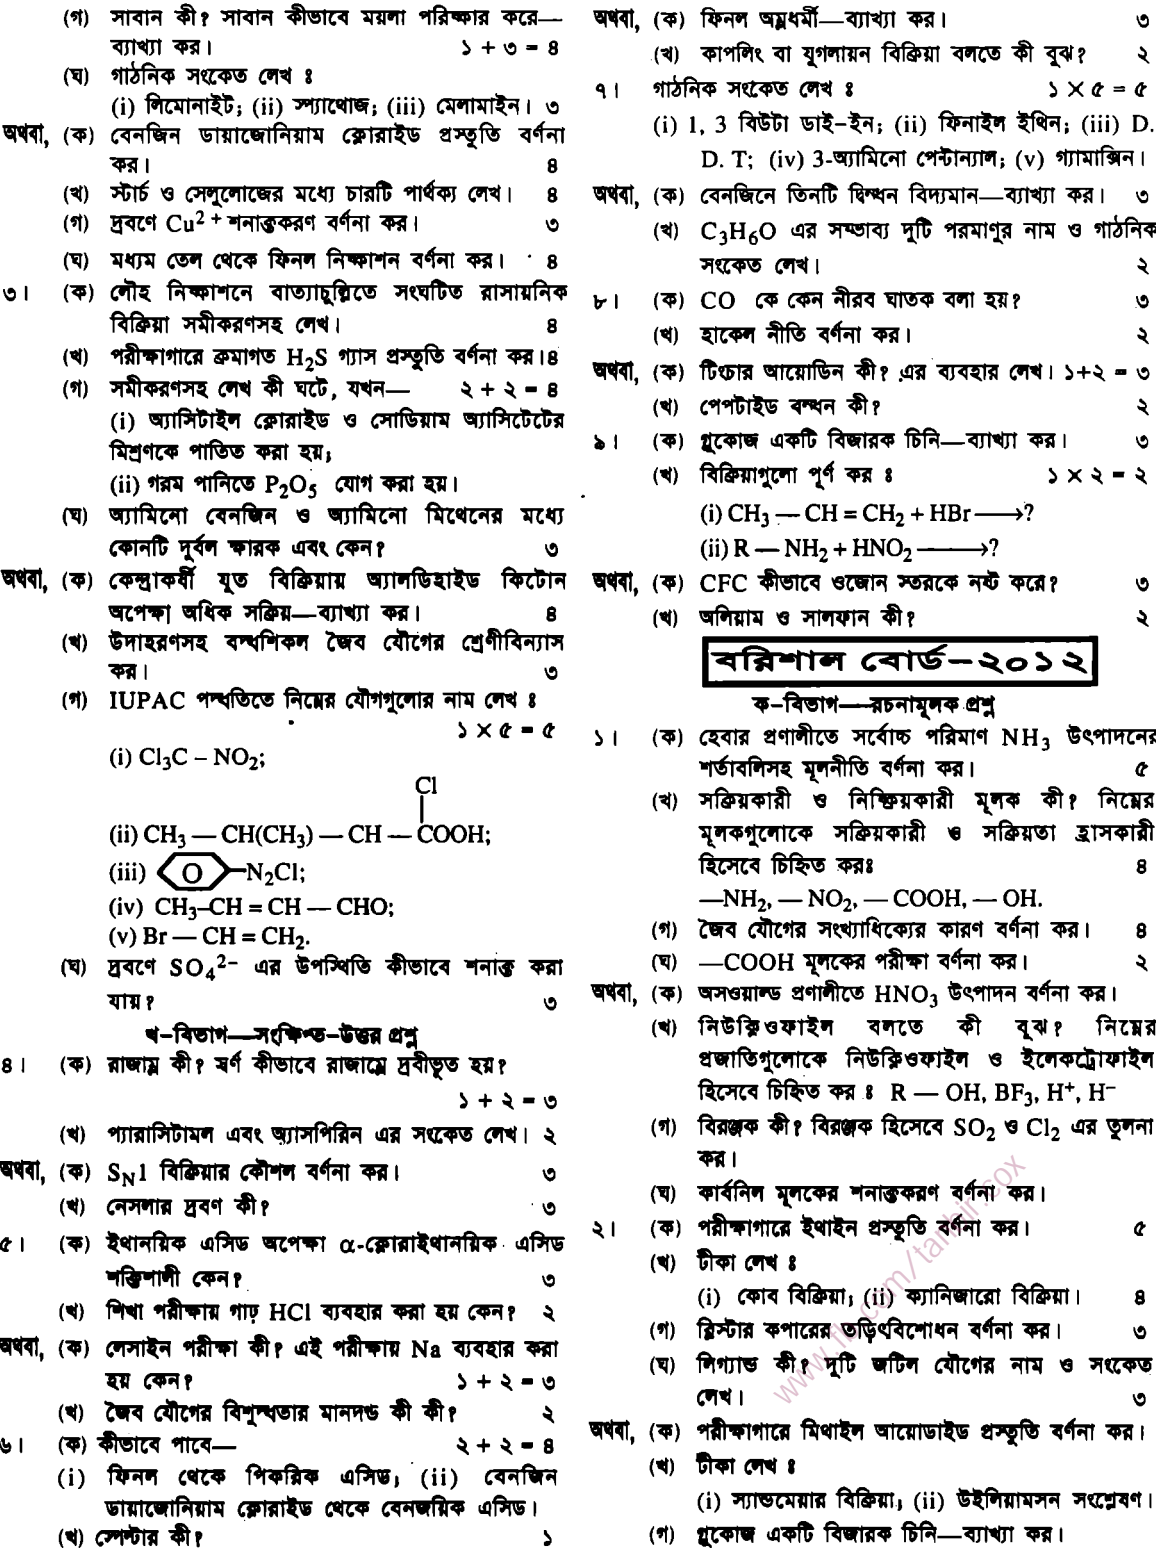 (গ) সাবান কী? সাবান কীভাবে ময়লা পরিষ্কার করে—
ব্যাখ্যা কর। ১ + ৩ = ৪
(ঘ) গাঠনিক সংকেত লেখ ঃ
(i) লিমোনাইট; (ii) স্প্যাথোজ; (iii) মেলামাইন। ৩
অথবা, (ক) বেনজিন ডায়াজোনিয়াম ক্লোরাইড প্রস্তুতি বর্ণনা
কর। ৪
(খ) স্টার্চ ও সেলুলোজের মধ্যে চারটি পার্থক্য লেখ। ৪
(গ) দ্রবণে Cu²⁺ শনাক্তকরণ বর্ণনা কর। ৩
(ঘ) মধ্যম তেল থেকে ফিনল নিষ্কাশন বর্ণনা কর। ৪
৩। (ক) লৌহ নিষ্কাশনে বাত্যাচুল্লিতে সংঘটিত রাসায়নিক
বিক্রিয়া সমীকরণসহ লেখ। ৪
(খ) পরীক্ষাগারে ক্রমাগত H₂S গ্যাস প্রস্তুতি বর্ণনা কর।৪
(গ) সমীকরণসহ লেখ কী ঘটে, যখন— ২ + ২ = ৪
(i) অ্যাসিটাইল ক্লোরাইড ও সোডিয়াম অ্যাসিটেটের
মিশ্রণকে পাতিত করা হয়;
(ii) গরম পানিতে P₂O₅ যোগ করা হয়।
(ঘ) অ্যামিনো বেনজিন ও অ্যামিনো মিথেনের মধ্যে
কোনটি দুর্বল ক্ষারক এবং কেন? ৩
অথবা, (ক) কেন্দ্রাকর্ষী যুত বিক্রিয়ায় অ্যালডিহাইড কিটোন
অপেক্ষা অধিক সক্রিয়—ব্যাখ্যা কর। ৪
(খ) উদাহরণসহ বন্ধশিকল জৈব যৌগের শ্রেণীবিন্যাস
কর। ৩
(গ) IUPAC পদ্ধতিতে নিম্নের যৌগগুলোর নাম লেখ ঃ
১ × ৫ = ৫
(i) Cl₃C – NO₂;
Cl
(ii) CH₃ — CH(CH₃) — CH — COOH;
(iii) O N₂Cl;
(iv) CH₃–CH = CH — CHO;
(v) Br — CH = CH₂.
(ঘ) দ্রবণে SO₄²⁻ এর উপস্থিতি কীভাবে শনাক্ত করা
যায়? ৩
খ-বিভাগ—সংক্ষিপ্ত-উত্তর প্রশ্ন
৪। (ক) রাজাম্ল কী? স্বর্ণ কীভাবে রাজাম্লে দ্রবীভূত হয়?
১ + ২ = ৩
(খ) প্যারাসিটামল এবং অ্যাসপিরিন এর সংকেত লেখ। ২
অথবা, (ক) S_N1 বিক্রিয়ার কৌশল বর্ণনা কর। ৩
(খ) নেসলার দ্রবণ কী? ৩
৫। (ক) ইথানয়িক এসিড অপেক্ষা α-ক্লোরাইথানয়িক এসিড
শক্তিশালী কেন? ৩
(খ) শিখা পরীক্ষায় গাঢ় HCl ব্যবহার করা হয় কেন? ২
অথবা, (ক) লেসাইন পরীক্ষা কী? এই পরীক্ষায় Na ব্যবহার করা
হয় কেন? ১ + ২ = ৩
(খ) জৈব যৌগের বিশুদ্ধতার মানদণ্ড কী কী? ২
৬। (ক) কীভাবে পাবে— ২ + ২ = ৪
(i) ফিনল থেকে পিকরিক এসিড; (ii) বেনজিন
ডায়াজোনিয়াম ক্লোরাইড থেকে বেনজয়িক এসিড।
(খ) স্পেল্টার কী? ১
অথবা, (ক) ফিনল অম্লধর্মী—ব্যাখ্যা কর। ৩
(খ) কাপলিং বা যুগলায়ন বিক্রিয়া বলতে কী বুঝ? ২
৭। গাঠনিক সংকেত লেখ ঃ ১ × ৫ = ৫
(i) 1, 3 বিউটা ডাই-ইন; (ii) ফিনাইল ইথিন; (iii) D.
D. T; (iv) 3-অ্যামিনো পেন্টান্যাল; (v) গ্যামাক্সিন।
অথবা, (ক) বেনজিনে তিনটি দ্বিবন্ধন বিদ্যমান—ব্যাখ্যা কর। ৩
(খ) C₃H₆O এর সম্ভাব্য দুটি পরমাণুর নাম ও গাঠনিক
সংকেত লেখ। ২
৮। (ক) CO কে কেন নীরব ঘাতক বলা হয়? ৩
(খ) হাকেল নীতি বর্ণনা কর। ২
অথবা, (ক) টিংচার আয়োডিন কী? এর ব্যবহার লেখ। ১+২ = ৩
(খ) পেপটাইড বন্ধন কী? ২
৯। (ক) গ্লুকোজ একটি বিজারক চিনি—ব্যাখ্যা কর। ৩
(খ) বিক্রিয়াগুলো পূর্ণ কর ঃ ১ × ২ = ২
(i) CH₃ — CH = CH₂ + HBr ⟶?
(ii) R — NH₂ + HNO₂ ⟶?
অথবা, (ক) CFC কীভাবে ওজোন স্তরকে নষ্ট করে? ৩
(খ) অলিয়াম ও সালফান কী? ২
বরিশাল বোর্ড-২০১২
ক-বিভাগ—রচনামূলক প্রশ্ন
১। (ক) হেবার প্রণালীতে সর্বোচ্চ পরিমাণ NH₃ উৎপাদনের
শর্তাবলিসহ মূলনীতি বর্ণনা কর। ৫
(খ) সক্রিয়কারী ও নিষ্ক্রিয়কারী মূলক কী? নিম্নের
মূলকগুলোকে সক্রিয়কারী ও সক্রিয়তা হ্রাসকারী
হিসেবে চিহ্নিত করঃ ৪
—NH₂, — NO₂, — COOH, — OH.
(গ) জৈব যৌগের সংখ্যাধিক্যের কারণ বর্ণনা কর। ৪
(ঘ) —COOH মূলকের পরীক্ষা বর্ণনা কর। ২
অথবা, (ক) অসওয়াল্ড প্রণালীতে HNO₃ উৎপাদন বর্ণনা কর।
(খ) নিউক্লিওফাইল বলতে কী বুঝ? নিম্নের
প্রজাতিগুলোকে নিউক্লিওফাইল ও ইলেকট্রোফাইল
হিসেবে চিহ্নিত কর ঃ R — OH, BF₃, H⁺, H⁻
(গ) বিরঞ্জক কী? বিরঞ্জক হিসেবে SO₂ ও Cl₂ এর তুলনা
কর।
(ঘ) কার্বনিল মূলকের শনাক্তকরণ বর্ণনা কর।
২। (ক) পরীক্ষাগারে ইথাইন প্রস্তুতি বর্ণনা কর। ৫
(খ) টীকা লেখ ঃ
(i) কোব বিক্রিয়া; (ii) ক্যানিজারো বিক্রিয়া। ৪
(গ) ব্লিস্টার কপারের তড়িৎবিশোধন বর্ণনা কর। ৩
(ঘ) লিগ্যান্ড কী? দুটি জটিল যৌগের নাম ও সংকেত
লেখ। ৩
অথবা, (ক) পরীক্ষাগারে মিথাইল আয়োডাইড প্রস্তুতি বর্ণনা কর।
(খ) টীকা লেখ ঃ
(i) স্যান্ডমেয়ার বিক্রিয়া; (ii) উইলিয়ামসন সংশ্লেষণ।
(গ) গ্লুকোজ একটি বিজারক চিনি—ব্যাখ্যা কর।